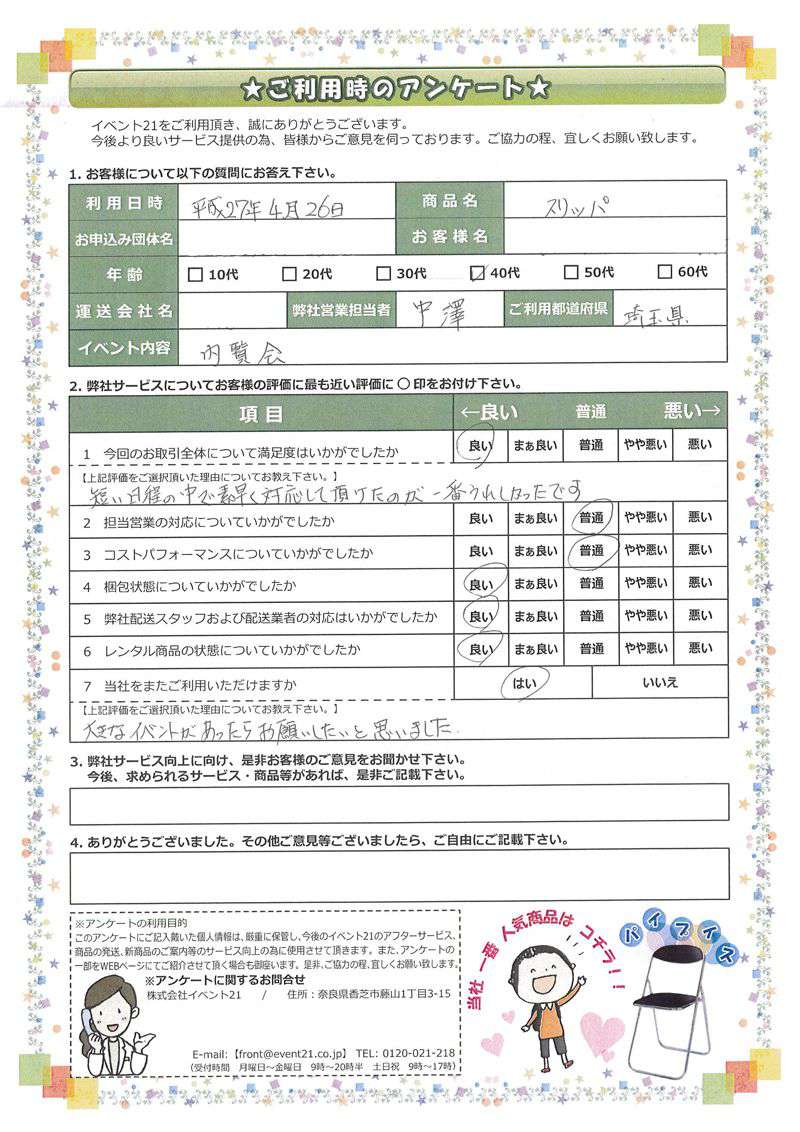 ★ご利用時のアンケート★
イベント21をご利用頂き、誠にありがとうございます。
今後より良いサービス提供の為、皆様からご意見を伺っております。ご協力の程、宜しくお願い致します。
1. お客様について以下の質問にお答え下さい。
利用日時 平成27年4月26日 商品名 スリッパ
お申込み団体名 お客様名
年齢 □ 10代 □ 20代 □ 30代 ☑ 40代 □ 50代 □ 60代
運送会社名 弊社営業担当者 中澤 ご利用都道府県 埼玉県
イベント内容 内覧会
2. 弊社サービスについてお客様の評価に最も近い評価に ○ 印をお付け下さい。
項目 ←良い 普通 悪い→
1 今回のお取引全体について満足度はいかがでしたか 良い まぁ良い 普通 やや悪い 悪い
【上記評価をご選択頂いた理由についてお教え下さい。】
短い日程の中で素早く対応して頂けたのが一番うれしかったです
2 担当営業の対応についていかがでしたか 良い まぁ良い 普通 やや悪い 悪い
3 コストパフォーマンスについていかがでしたか 良い まぁ良い 普通 やや悪い 悪い
4 梱包状態についていかがでしたか 良い まぁ良い 普通 やや悪い 悪い
5 弊社配送スタッフおよび配送業者の対応はいかがでしたか 良い まぁ良い 普通 やや悪い 悪い
6 レンタル商品の状態についていかがでしたか 良い まぁ良い 普通 やや悪い 悪い
7 当社をまたご利用いただけますか はい いいえ
【上記評価をご選択頂いた理由についてお教え下さい。】
大きなイベントがあったらお願いしたいと思いました.
3. 弊社サービス向上に向け、是非お客様のご意見をお聞かせ下さい。
今後、求められるサービス・商品等があれば、是非ご記載下さい。
4. ありがとうございました。その他ご意見等ございましたら、ご自由にご記載下さい。
※アンケートの利用目的
このアンケートにご記入戴いた個人情報は、厳重に保管し、今後のイベント21のアフターサービス、
商品の発送、新商品のご案内等のサービス向上の為に使用させて頂きます。また、アンケートの
一部をWEBページにてご紹介させて頂く場合も御座います。是非、ご協力の程、宜しくお願い致します。
※アンケートに関するお問合せ
株式会社イベント21 / 住所：奈良県香芝市藤山1丁目3-15
E-mail:【front@event21.co.jp】 TEL: 0120-021-218
（受付時間 月曜日～金曜日 9時～20時半 土日祝 9時～17時）
当社一番人気商品はコチラ！！
パイプイス